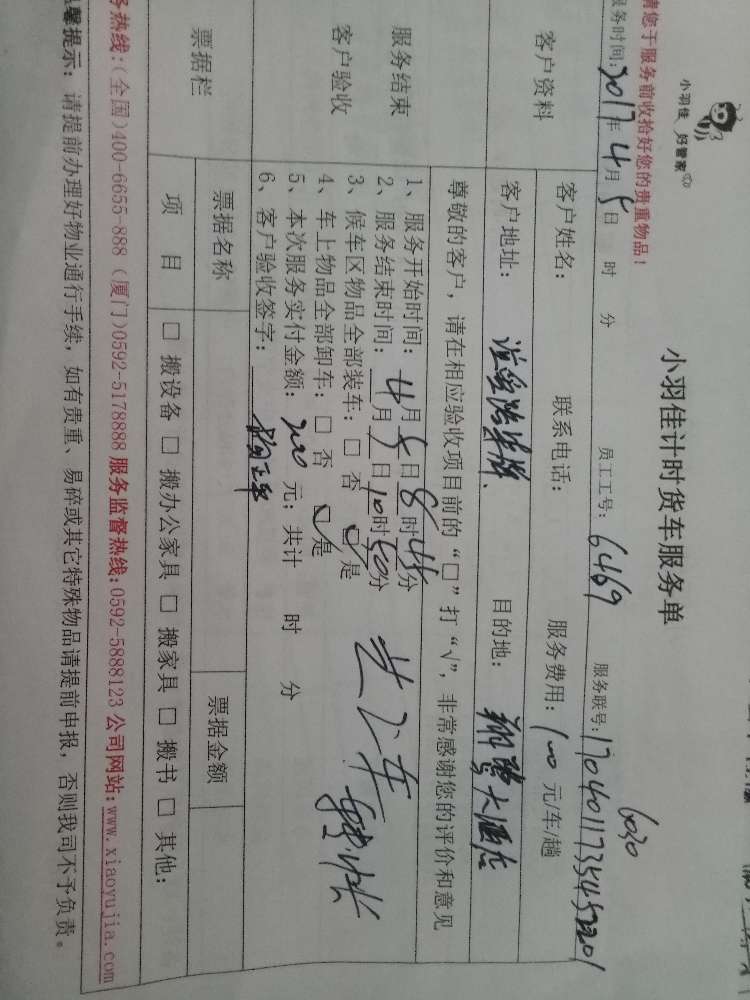 小羽佳 好管家
小羽佳计时货车服务单
请您于服务前收拾好您的贵重物品！
6030
服务时间：2017年4月5日 时 分 员工工号：6469 服务联号：1704011735452201
客户资料
客户姓名： 联系电话： 服务费用：100元/车/趟
客户地址： 目的地：翔鹭大酒店
尊敬的客户，请在相应验收项目前的“□”打“√”，非常感谢您的评价和意见
服务结束
客户验收
1、服务开始时间：4月5日8时45分
2、服务结束时间： 月 日10时50分
3、候车区物品全部装车：□ 否 ☑ 是
4、车上物品全部卸车：□ 否 ☑ 是
5、本次服务实付金额：200元；共计 时 分
6、客户验收签字：
票据栏
票据名称 票据金额
项 目 □ 搬设备 □ 搬办公家具 □ 搬家具 □ 搬书 □ 其他：
务热线：（全国）400-6655-888（厦门）0592-5178888 服务监督热线：0592-5888123 公司网站：www.xiaoyujia.com
温馨提示：请提前办理好物业通行手续，如有贵重、易碎或其它特殊物品请提前申报，否则我司不予负责。